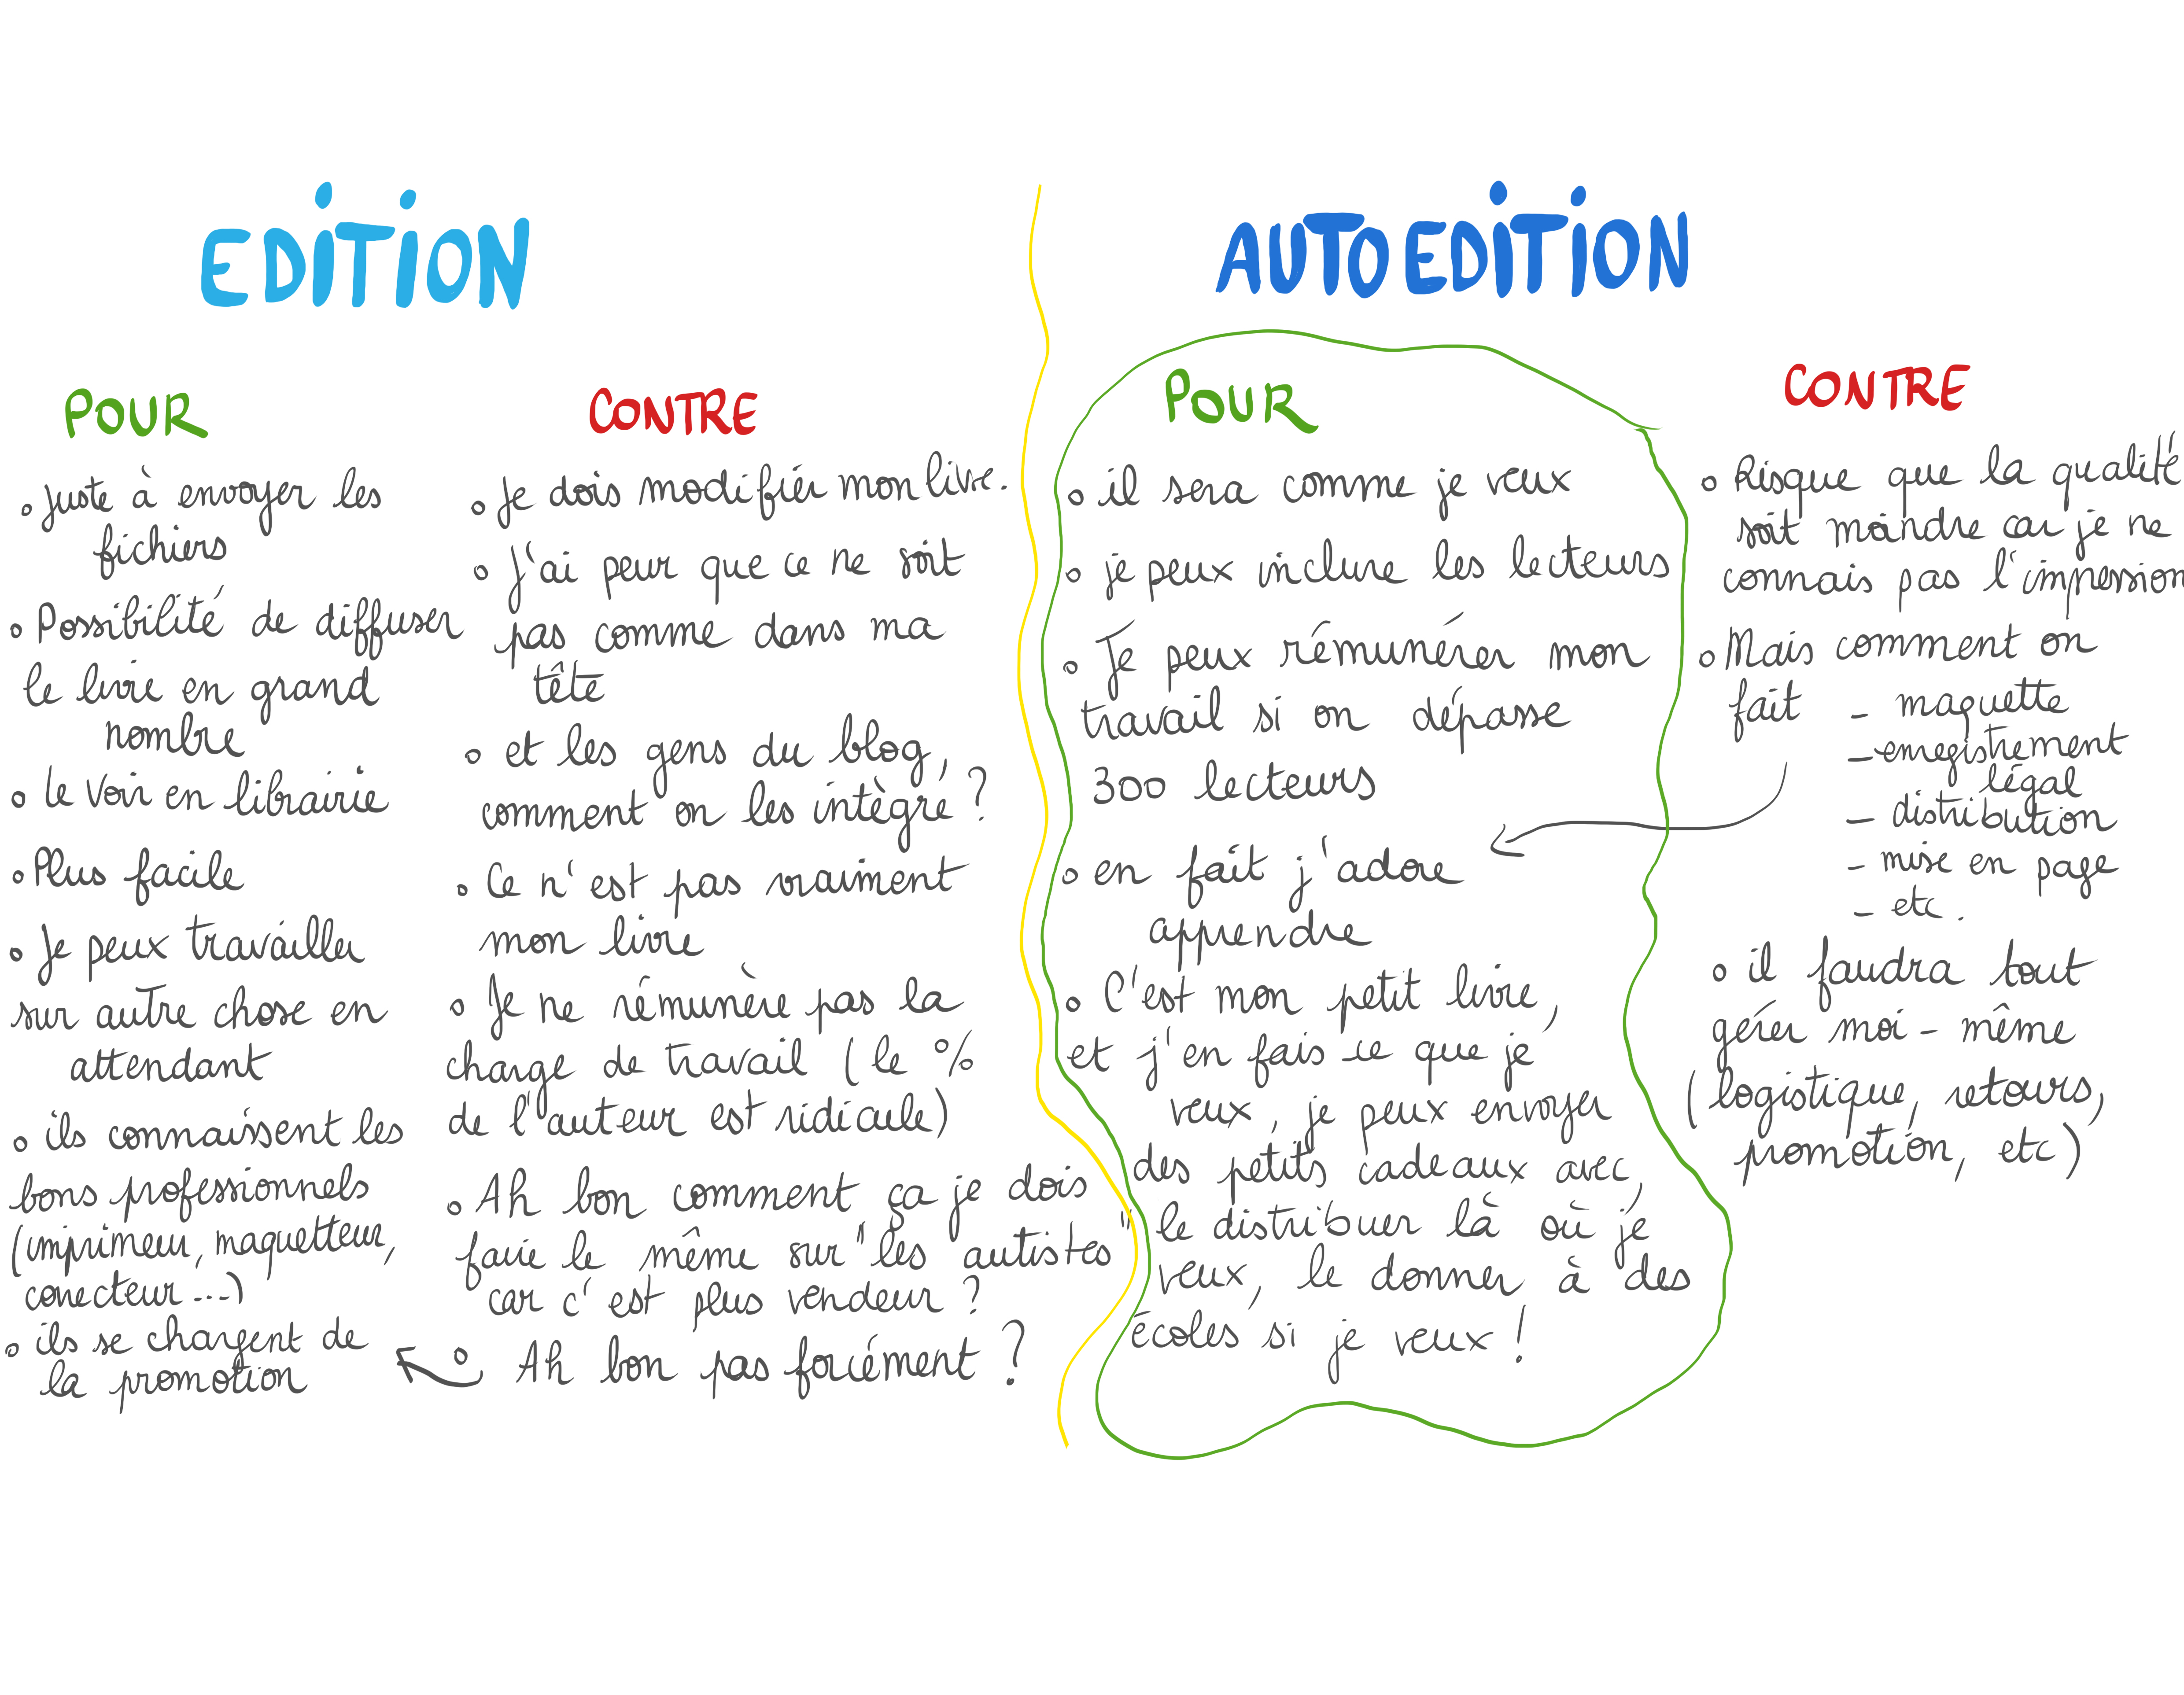 EDITION
POUR
• juste à envoyer les
fichiers
• Possibilité de diffuser
le livre en grand
nombre
• le voir en librairie
• Plus facile
• Je peux travailler
sur autre chose en
attendant
• ils connaissent les
bons professionnels
(imprimeur, maquetteur,
correcteur ...)
• ils se chargent de
la promotion
CONTRE
• Je dois modifier mon livre.
• J'ai peur que ce ne soit
pas comme dans ma
tête
• et les gens du blog,
comment on les intègre ?
• Ce n'est pas vraiment
mon livre
• Je ne rémunère pas la
charge de travail (le %
de l'auteur est ridicule)
• Ah bon comment ça je dois
faire le même sur "les autistes"
car c'est plus vendeur ?
• Ah bon pas forcément ?
AUTOEDITION
POUR
• il sera comme je veux
• je peux inclure les lecteurs
• Je peux rémunérer mon
travail si on dépasse
300 lecteurs
• en fait j'adore
apprendre
• C'est mon petit livre,
et j'en fais ce que je
veux, je peux envoyer
des petits cadeaux avec,
le distribuer là où je
veux, le donner à des
écoles si je veux !
CONTRE
• Risque que la qualité
soit moindre car je ne
connais pas l'impression
• Mais comment on
fait - maquette
- enregistrement
légal
- distribution
- mise en page
- etc.
• il faudra tout
gérer moi-même
(logistique, retours,
promotion, etc)